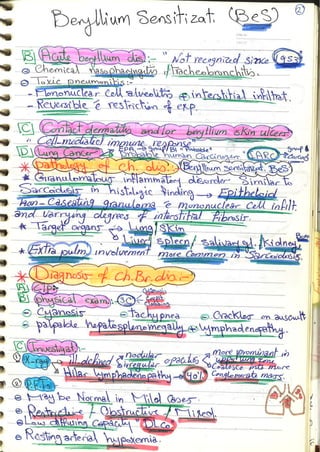 Beryllium Sensitizat. (BeS)
2
B) Acute beryllium dis:- "Not recognized since 1953"
⊖ Chemical nasopharyngitis / tracheobronchitis.
⊖ Toxic pneumonitis:-
- Mononuclear cell alveolitis interstitial infiltrat.
- Reversible restriction of exp.
C) Contact dermatitis and/or beryllium skin ulcers
cell-mediated immune response
D) Lung Cancer Probable human Carcinogen IARC
* Pathology of ch. dis: (Beryllium Sensitized. BeS)
⊖ Granulomatous inflammatory disorder similar to
Sarcoidosis in histologic finding → Epithelioid
non-Caseating granuloma mononuclear Cell infilt.
and varrying degrees of interstitial fibrosis.
* Target organs → Lung / Skin
Liver / spleen / salivary gl / Kidney
* Extra pulm involvement more Common in Sarcoidosis.
* Diagnosis of Ch. Br. dis:-
A) C/P:
B) physical exam: 3C
⊖ Cyanosis - tachypnea ⊖ Crackles on auscult
⊖ palpable hepatosplenomegally + lymphadenopathy.
C) Investigat:
X-ray ill-defined nodular irregular opacities more prominent in upper lung zone
Coalesce into more Conglomerate mass
* Hilar lymphadenopathy → 40%
PFTs
⊖ May be Normal in Mild Cases
⊖ Restrictive / Obstructive / Mixed.
⊖ Low diffusing capacity DLco
⊖ Resting arterial hypoxemia.